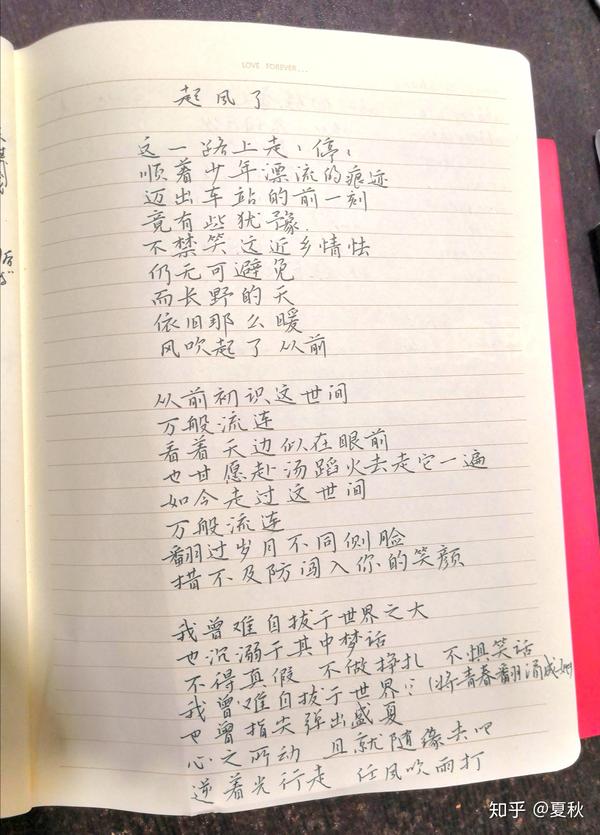 LOVE FOREVER...
起风了
这一路上走、停、
顺着少年漂流的痕迹
迈出车站的前一刻
竟有些犹豫
不禁笑这近乡情怯
仍无可避免
而长野的天
依旧那么暖
风吹起了从前
从前初识这世间
万般流连
看着天边似在眼前
也甘愿赴汤蹈火去走它一遍
如今走过这世间
万般流连
翻过岁月不同侧脸
措不及防闯入你的笑颜
我曾难自拔于世界之大
也沉溺于其中梦话
不得真假 不做挣扎 不惧笑话
我曾难自拔于世界 (将青春翻涌成她)
也曾指尖弹出盛夏
心之所动 且就随缘去吧
逆着光行走 任风吹雨打
知乎 @夏秋